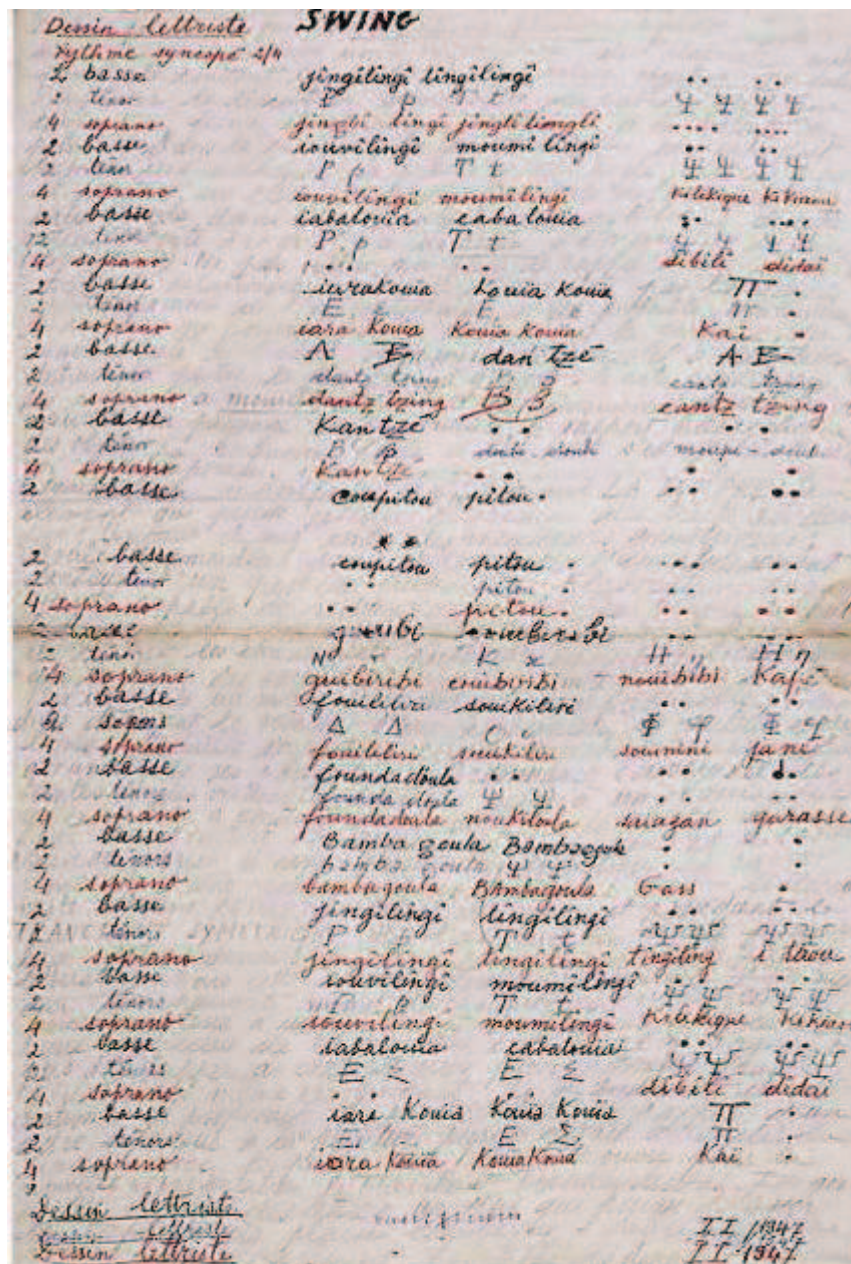 Dessin lettriste SWING
rythme syncopé 2/4
2 basse jingilingi lingilingi .. ..
2 tenor P p T t Ψ Ψ Ψ Ψ
4 soprano lingi .... ....
2 basse iouvilingi moumi lingi .. ..
2 tenor P p T t Ψ Ψ Ψ Ψ
4 soprano iouvilingi moumilingi Kilekique
2 basse iabalouia cabalouia
2 tenor P p T t Ψ Ψ Ψ Ψ
4 soprano .. .. dibili didai
2 basse iarakouia Kouia Kouia Π .
2 tenor E Σ E Σ Π .
4 soprano iara Kouia Kouia Kouia Kai .
2 basse Λ dan tzé
2 tenor dantz tzing cantz tzing
4 soprano dantz tzing B β cantz tzing
2 basse Kantzé .. .. ..
2 tenor B β
4 soprano Kantzé .. . .
2 basse coupitou pitou . .. ..
2 basse coupitou pitou . .. ..
2 tenor .. pitou . .. ..
4 soprano .. pitou . .. ..
2 basse .. ..
2 tenor K H H η
4 soprano guibiribi couibiribi nouibibi Kapé
2 basse fouileliri soukiliri .. ..
2 Δ Δ Φ φ Φ φ
4 soprano fouileliri soukiliri sournini jani
2 basse foundadoula .. ..
2 tenors founda doula Ψ Ψ .. ..
4 soprano foundadoula noukiloula gurasse
2 basse Bamba goula Bambagoula . .
2 tenors bamba goula Ψ Ψ . .
4 soprano bambagoula Bambagoula Gass .
2 basse jingilingi lingilingi .. ..
2 tenors P p T t Ψ Ψ Ψ Ψ
4 soprano jingilingi lingilingi tingiling i taou
2 basse iouvilingi moumilingi .. ..
2 tenors P p T t Ψ Ψ Ψ Ψ
4 soprano iouvilingi moumilingi Kilekique
2 basse iabalouia cabalouia .. ..
2 tenors E Σ E Σ Ψ Ψ Ψ Ψ
4 soprano .. .. dibili didai
2 basse iara Kouia Kouia Kouia Π .
2 tenors E Σ E Σ Π .
4 soprano iara Kouia Kouia Kouia Kai .
Dessin lettriste
Dessin lettriste II /1947
Dessin lettriste II 1947